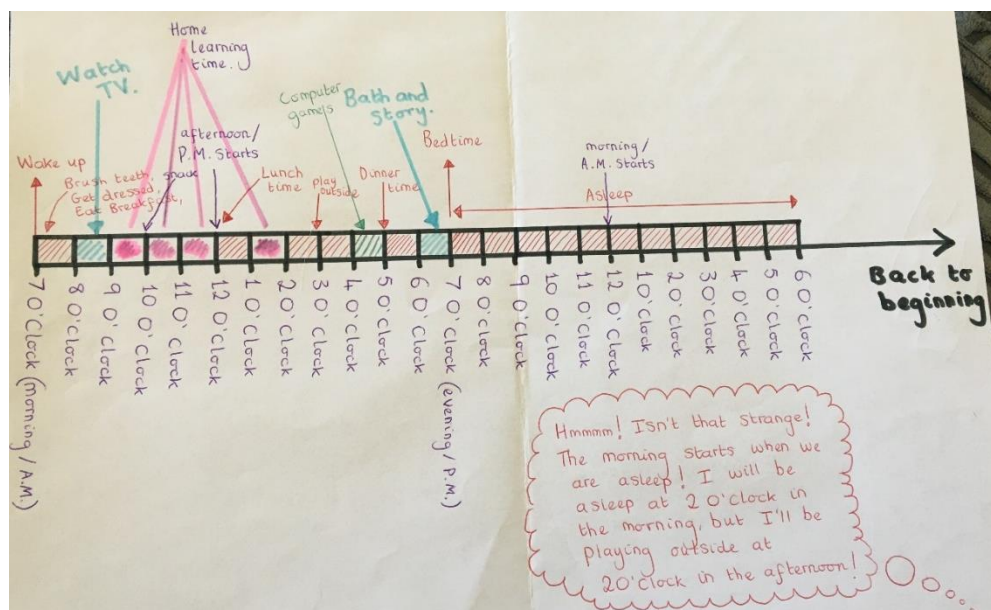 Home
Learning
time.
Watch
TV.
Computer
games
Bath and
story.
afternoon/
P.M. Starts
morning/
A.M. Starts
Bedtime
Wake up
Brush teeth, snack
Get dressed,
Eat Breakfast,
Lunch
time
play
outside
Dinner
time
Asleep
7 O'Clock (morning / A.M.)
8 O'Clock
9 O'Clock
10 O'Clock
11 O'Clock
12 O'Clock
1 O'Clock
2 O'Clock
3 O'Clock
4 O'Clock
5 O'Clock
6 O'Clock
7 O'Clock (evening / P.M.)
8 O'Clock
9 O'Clock
10 O'Clock
11 O'Clock
12 O'Clock
1 O'Clock
2 O'Clock
3 O'Clock
4 O'Clock
5 O'Clock
6 O'Clock
Back to
beginning
Hmmmm! Isn't that strange!
The morning starts when we
are asleep! I will be
asleep at 2 O'Clock in
the morning, but I'll be
playing outside at
2 O'Clock in the afternoon!